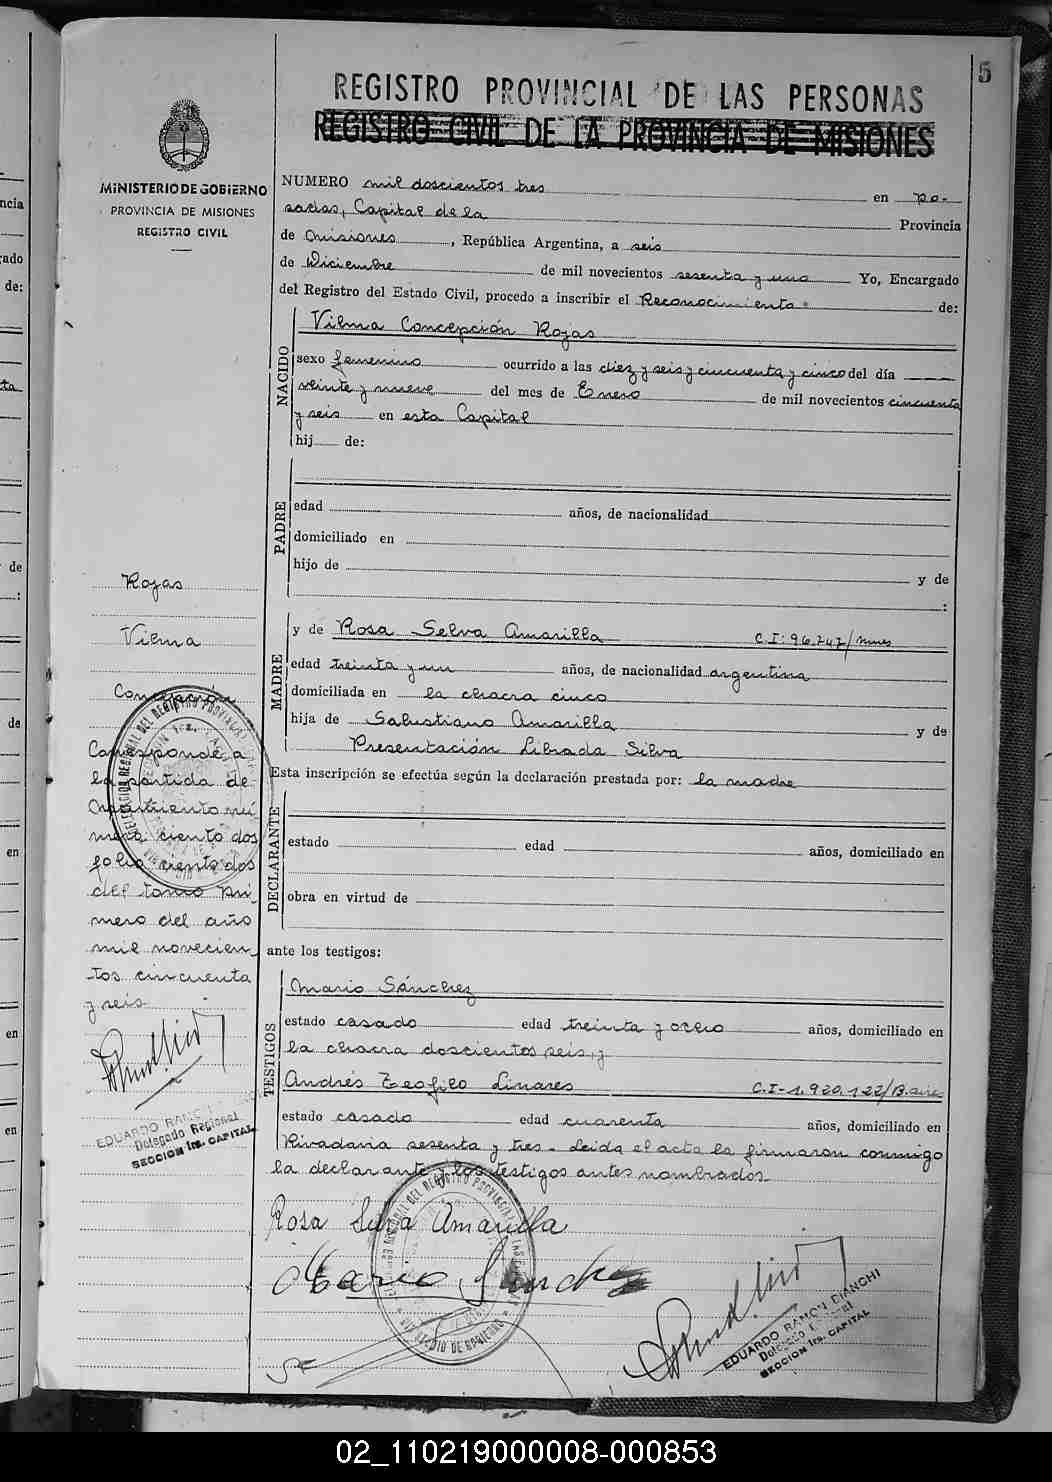 5
REGISTRO PROVINCIAL DE LAS PERSONAS
REGISTRO CIVIL DE LA PROVINCIA DE MISIONES
MINISTERIO DE GOBIERNO
PROVINCIA DE MISIONES
REGISTRO CIVIL
NUMERO mil doscientos tres en Po-
sadas, Capital de la Provincia
de Misiones, República Argentina, a seis
de Diciembre de mil novecientos sesenta y uno Yo, Encargado
del Registro del Estado Civil, procedo a inscribir el Reconocimiento de:
NACIDO
Vilma Concepción Rojas
sexo femenino ocurrido a las diez y seis y cincuenta y cinco del día
veinte y nueve del mes de Enero de mil novecientos cincuenta
y seis en esta Capital
hij de:
PADRE
edad años, de nacionalidad
domiciliado en
hijo de y de
:
MADRE
y de Rosa Selva Amarilla C.I: 96.747/mnes
edad treinta y un años, de nacionalidad argentina
domiciliada en la chacra cinco
hija de Salustiano Amarilla y de
Presentación Librada Silva
Esta inscripción se efectúa según la declaración prestada por: la madre
DECLARANTE
estado edad años, domiciliado en
obra en virtud de
ante los testigos:
TESTIGOS
Mario Sánchez
estado casado edad treinta y ocho años, domiciliado en
la chacra doscientos seis, y
Andrés Teofilo Linares C.I-1.920.122/B.aires
estado casado edad cuarenta años, domiciliado en
Rivadavia sesenta y tres. Leida el acta la firmaron conmigo
la declarante y los testigos antes nombrados
Rosa Selva Amarilla
Mario Sánchez
EDUARDO RAMON BIANCHI
Delegado Regional
SECCION 1ra. CAPITAL
Rojas
Vilma
Concepción
Corresponde a
la partida de
nacimiento nú
mero ciento dos
folio ciento dos
del tomo pri
mero del año
mil novecien
tos cincuenta
y seis
EDUARDO RAMON
Delegado Regional
SECCION 1ra. CAPITAL
02_110219000008-000853